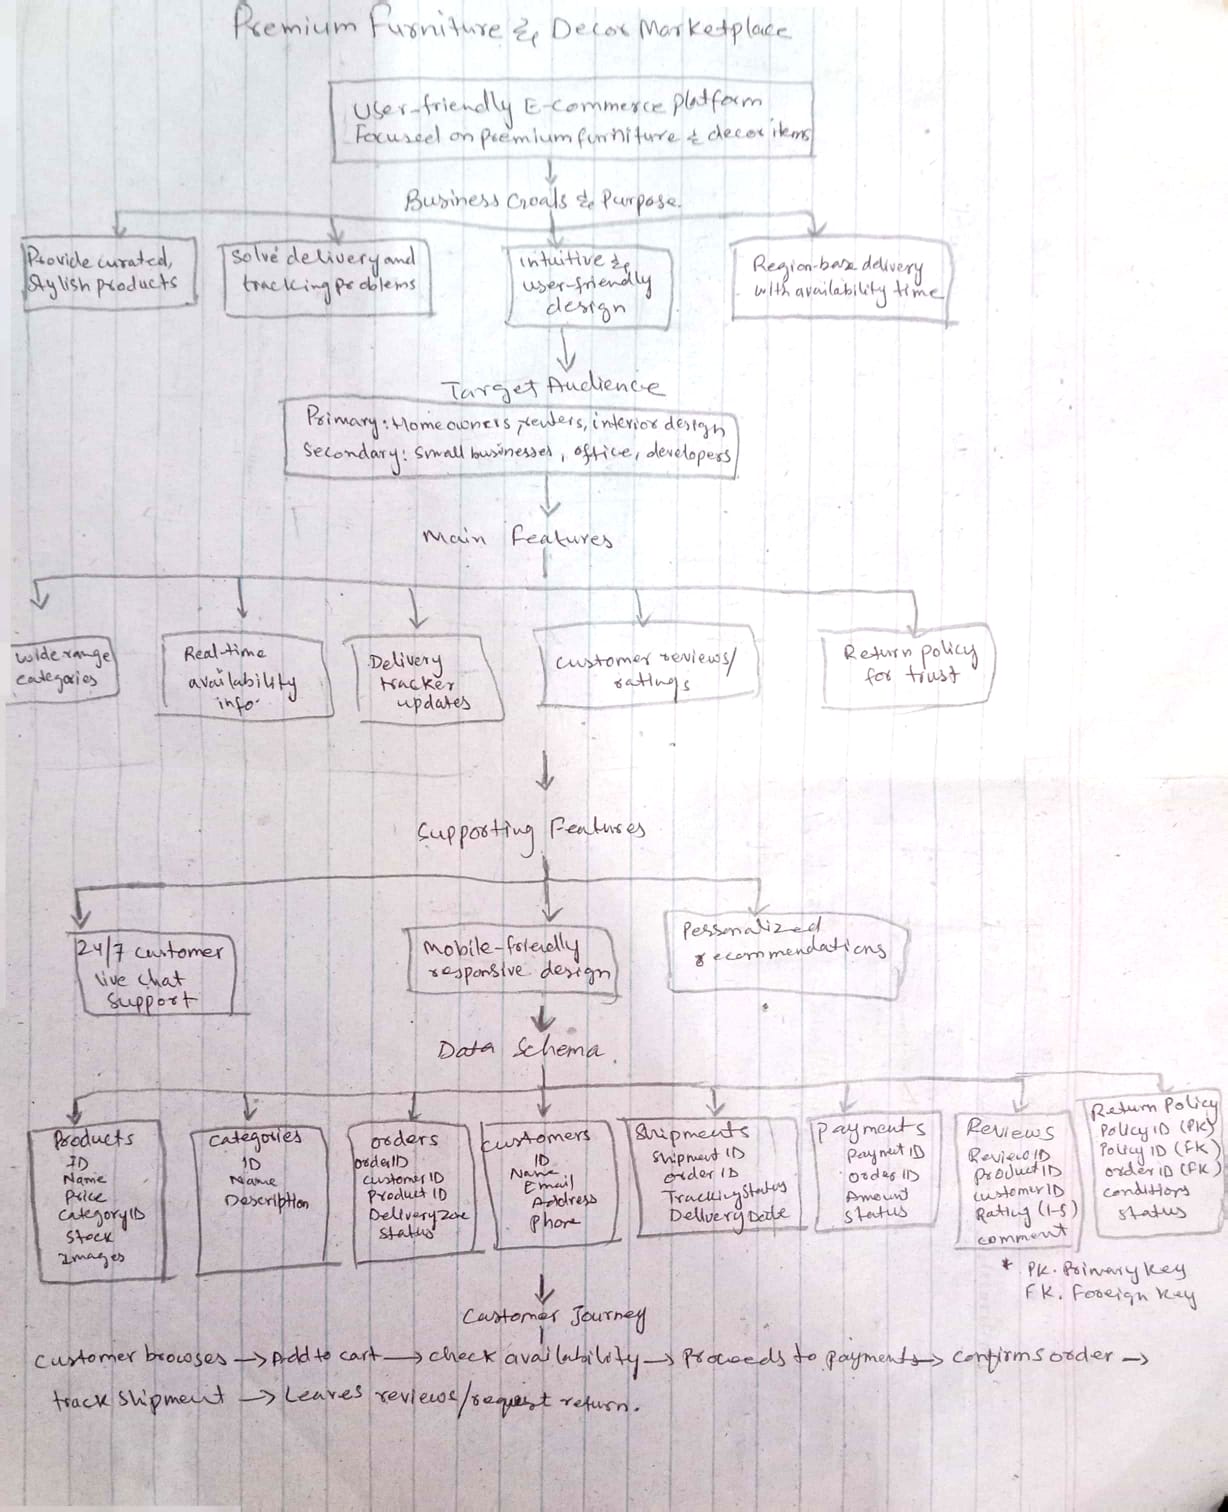 Premium Furniture & Decor Marketplace
User-friendly E-commerce platform
Focused on premium furniture & decor items
Business Goals & Purpose.
Provide curated,
stylish products
Solve delivery and
tracking problems
intuitive &
user-friendly
design
Region-base delivery
with availability time
Target Audience
Primary: Homeowners, renters, interior design
Secondary: Small businesses, office, developers
Main Features
wide range
categories
Real-time
availability
info.
Delivery
tracker
updates
customer reviews/
ratings
Return policy
for trust
Supporting Features
24/7 customer
live chat
support
Mobile-friendly
responsive design
Personalized
recommendations
Data Schema.
Products
ID
Name
Price
CategoryID
Stock
Images
Categories
ID
Name
Description
orders
orderID
customerID
Product ID
Delivery Zone
status
Customers
ID
Name
Email
Address
Phone
Shipments
Shipment ID
order ID
Tracking Status
Delivery Date
Payments
Payment ID
order ID
Amount
status
Reviews
Review ID
product ID
customer ID
Rating (1-5)
comment
Return Policy
Policy ID (PK)
Policy ID (FK)
order ID (FK)
conditions
status
* PK. Primary key
FK. Foreign key
Customer Journey
Customer browses → Add to cart → check availability → Proceeds to payments → confirms order →
track shipment → Leaves reviews/request return.